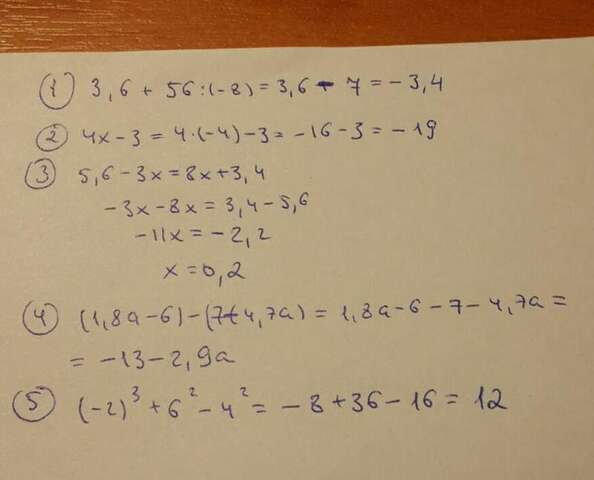 ① 3,6 + 56:(-8) = 3,6 - 7 = - 3,4
② 4x - 3 = 4·(-4) - 3 = -16 - 3 = -19
③ 5,6 - 3x = 8x + 3,4
-3x - 8x = 3,4 - 5,6
-11x = -2,2
x = 0,2
④ (1,8a - 6) - (7+4,7a) = 1,8a - 6 - 7 - 4,7a =
= -13 - 2,9a
⑤ (-2)³ + 6² - 4² = -8 + 36 - 16 = 12